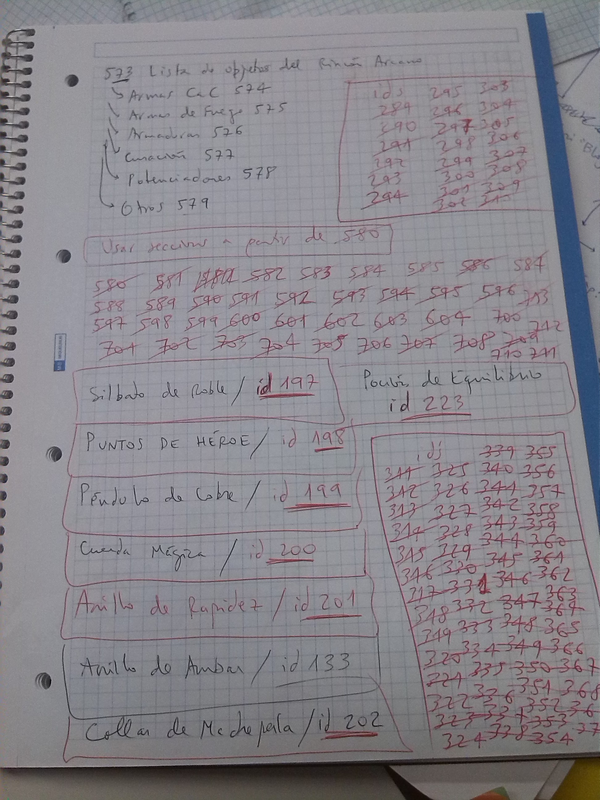 573 Lista de objetos del Rincón Arcano
Armas CaC 574
Armas de Fuego 575
Armaduras 576
Curación 577
Potenciadores 578
Otros 579
ids 295 303
289 296 304
290 297 305
291 298 306
292 299 307
293 300 308
294 301 309
302 310
Usar secciones a partir de 580
580 581 582 583 584 585 586 587
588 589 590 591 592 593 594 595 596
597 598 599 600 601 602 603 604 700 713
701 702 703 704 705 706 707 708 709 712
710 711
Silbato de Roble / id 197
Poción de Equilibrio
id 223
PUNTOS DE HÉROE / id 198
Péndulo de Cobre / id 199
Cuerda Mágica / id 200
Anillo de Rapidez / id 201
Anillo de Ambar / id 133
Collar de Macheperla / id 202
ids 339 355
311 325 340 356
312 326 341 357
313 327 342 358
314 328 343 359
315 329 344 360
316 330 345 361
317 331 346 362
318 332 347 363
364
319 333 348 365
320 334 349 366
321 335 350 367
322 336 351 368
323 337 352
324 338 353
354